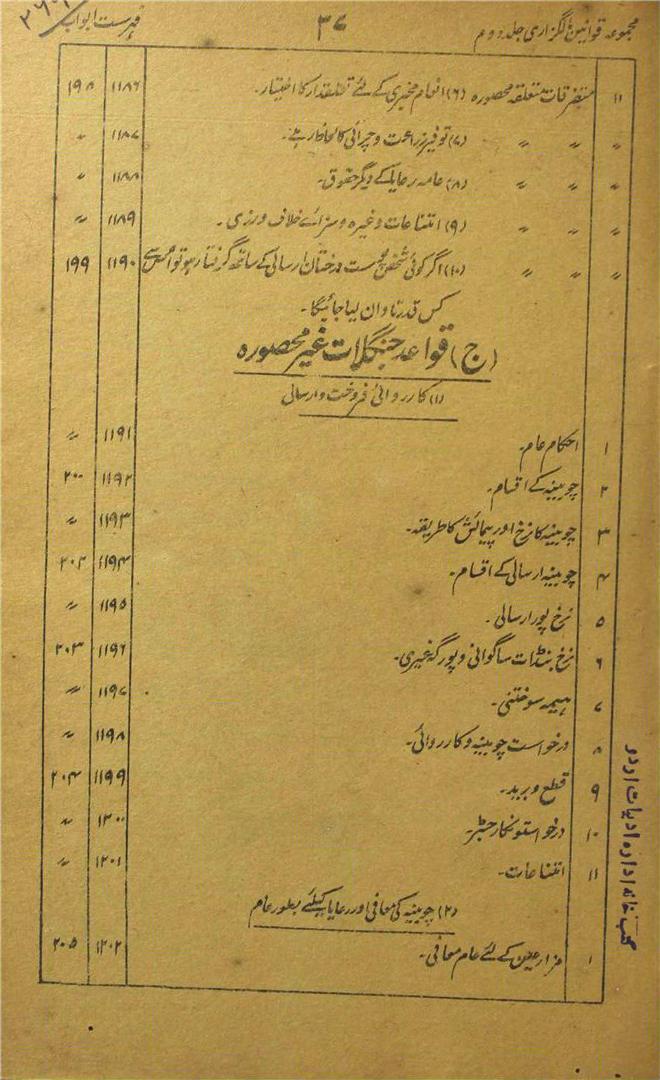 مجموعہ قوانین مالگزاری جلد دوم ۳۷ فہرست ابواب
۱۱ متفرقات متعلقہ محصورہ (۶) انعام مخبری کے لئے تعلقدار کا اختیار۔ ۱۱۸۶ ۱۹۸
〃 〃 〃 (۷) توفیر زراعت و چرائی کا لحاظ رہے۔ ۱۱۸۷ 〃
〃 〃 〃 (۸) عامہ رعایا کے دیگر حقوق۔ ۱۱۸۸ 〃
〃 〃 〃 (۹) امتناعات وغیرہ و سزائے خلاف ورزی۔ ۱۱۸۹ 〃
〃 〃 〃 (۱۰) اگر کوئی شخص پوست درختان ارسالی کے ساتھ گرفتار ہو تو اس سے ۱۱۹۰ ۱۹۹
کس قدر تاوان لیا جائیگا۔
(ج) قواعد جنگلات غیر محصورہ
(۱) کارروائی فروخت و ارسالی
۱ احکام عام۔ ۱۱۹۱ 〃
۲ چوبینہ کے اقسام۔ ۱۱۹۲ ۲۰۰
۳ چوبینہ کا نرخ اور پیمائش کا طریقہ۔ ۱۱۹۳ 〃
۴ چوبینہ ارسالی کے اقسام۔ ۱۱۹۴ ۲۰۲
۵ نرخ پور ارسالی۔ ۱۱۹۵ 〃
۶ نرخ بنڈات ساگوانی و پور گہ غیری۔ ۱۱۹۶ ۲۰۳
۷ ہیمہ سوختنی۔ ۱۱۹۷ 〃
۸ درخواست چوبینہ و کارروائی۔ ۱۱۹۸ 〃
۹ قطع و برید۔ ۱۱۹۹ ۲۰۴
۱۰ درخواستونکا رجسٹر ۱۲۰۰ 〃
۱۱ امتناعات۔ ۱۲۰۱ 〃
(۲) چوبینہ کی معافی اور رعایا کیلئے بطور عام
۱ مزارعین کے لئے عام معافی۔ ۱۲۰۲ ۲۰۵
کتب خانہ ادارہ ادبیات اردو